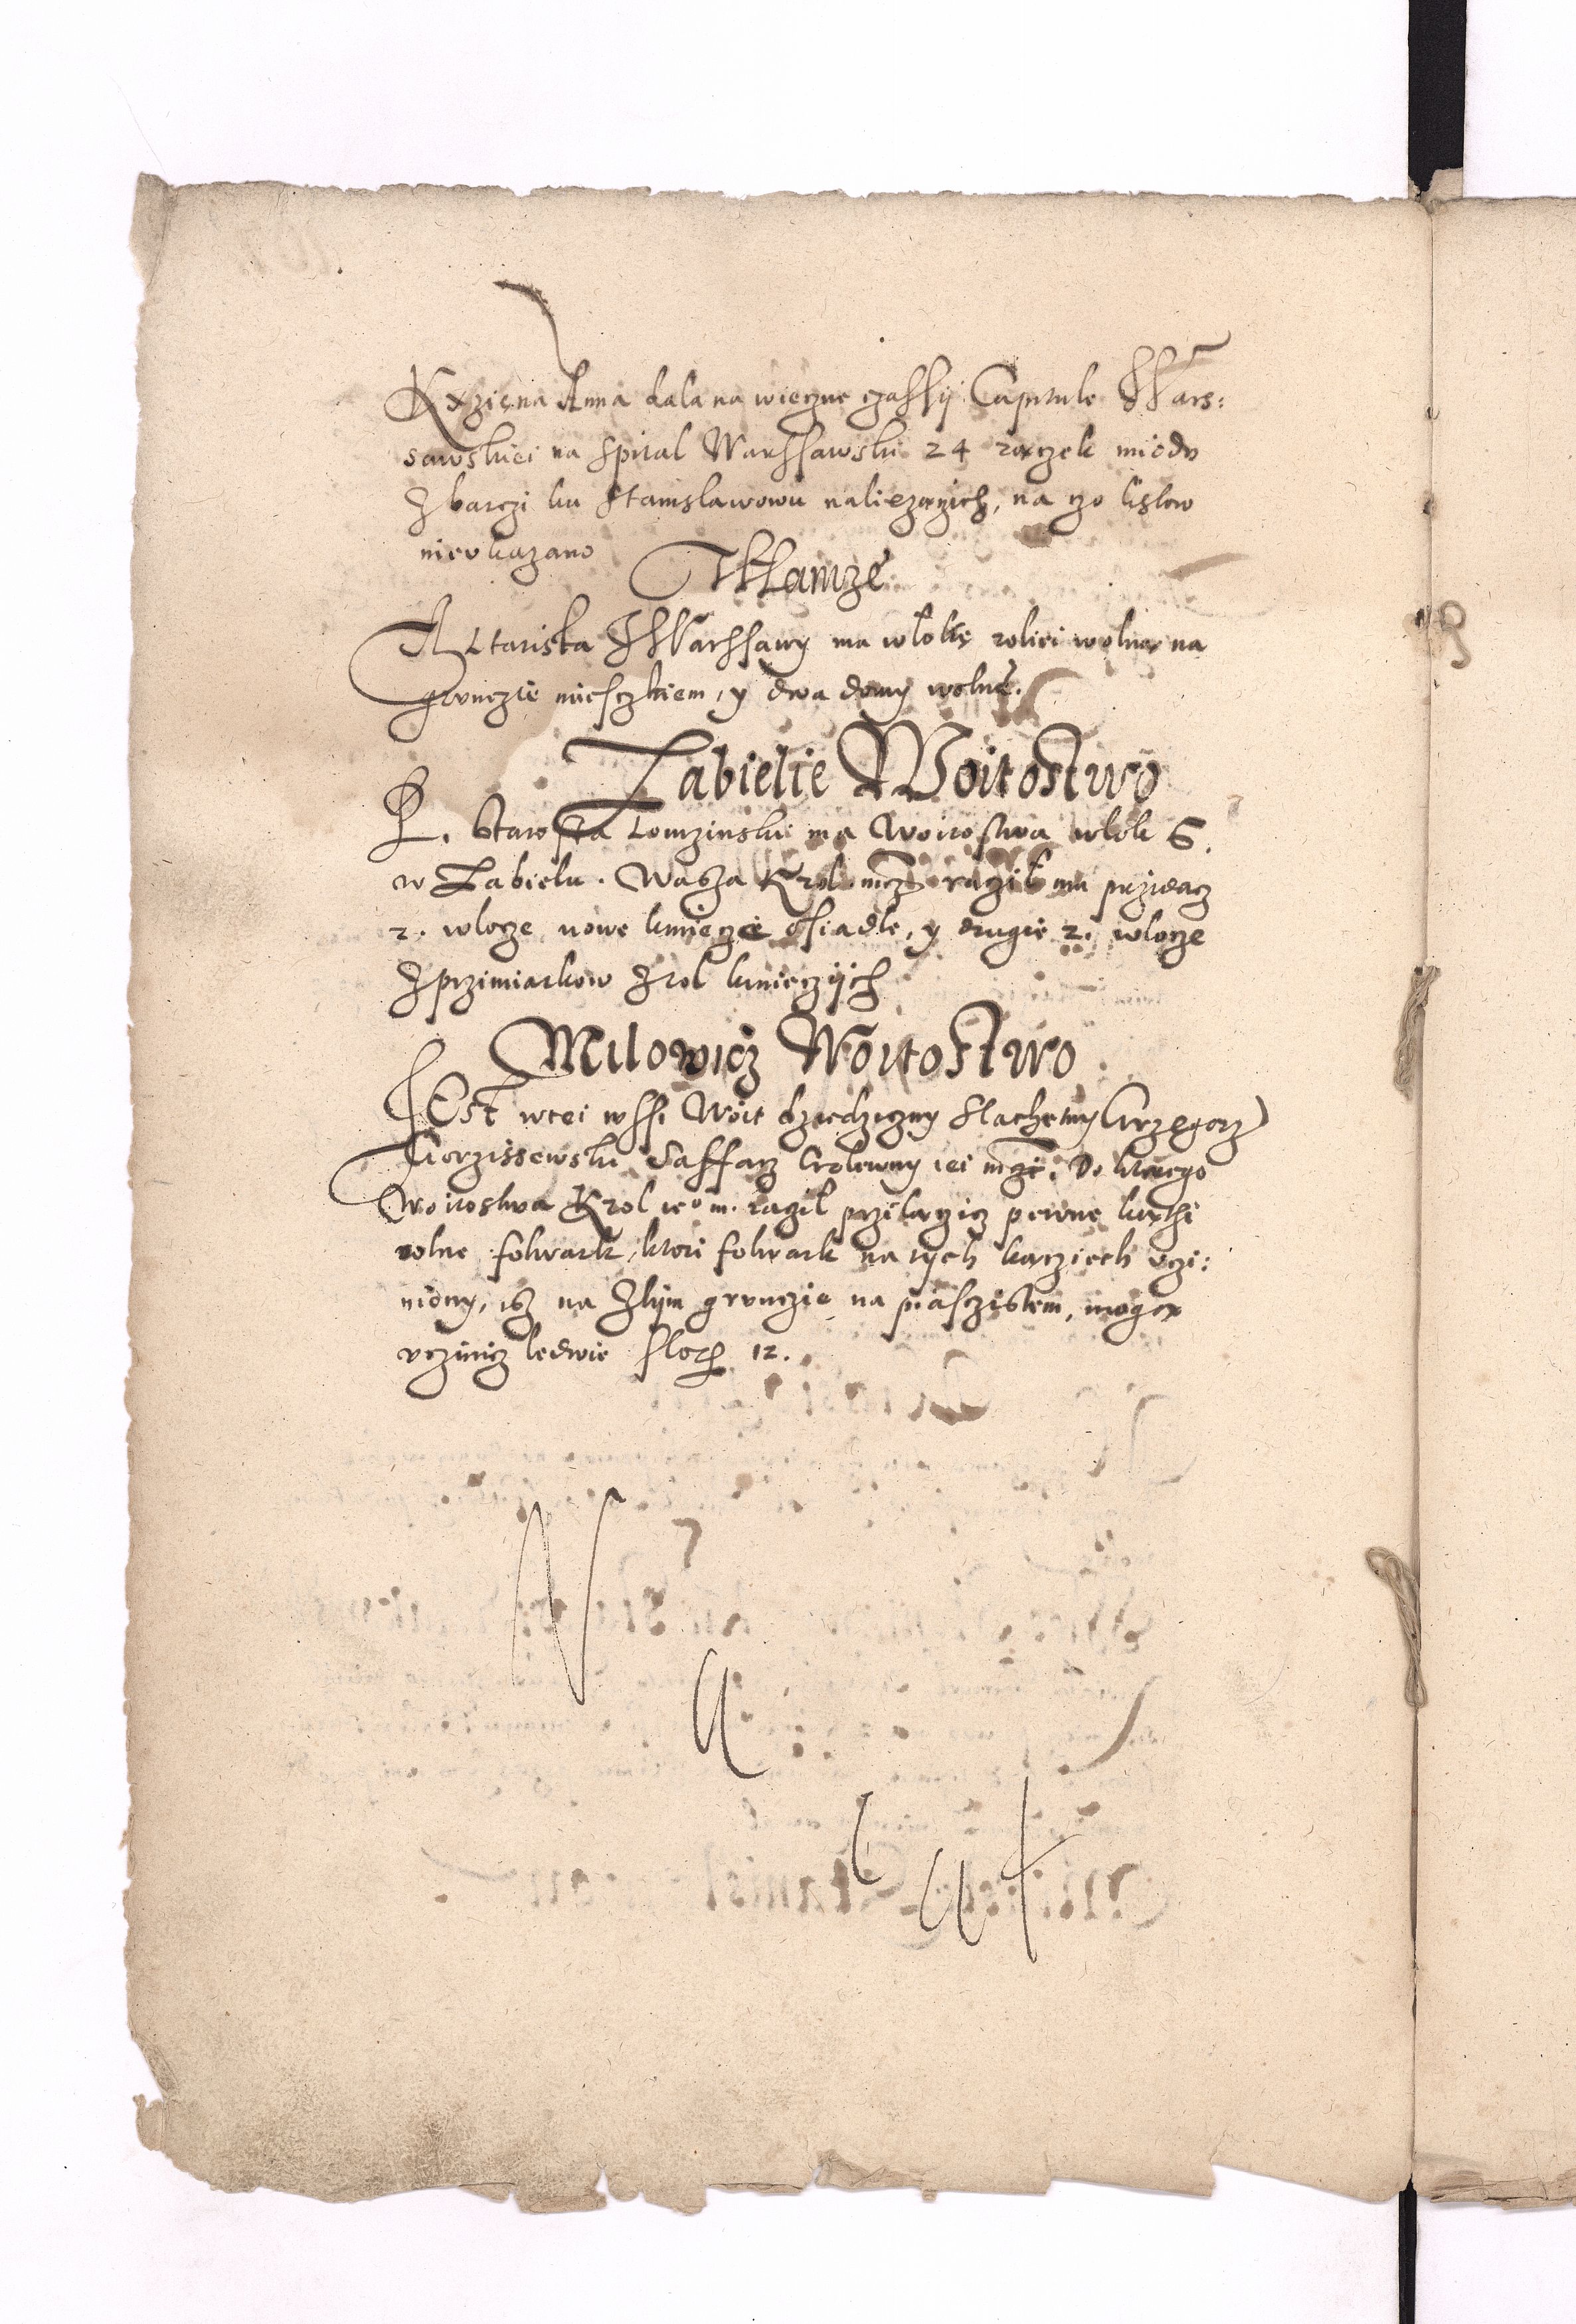 Kxziena Anna dala na wieczne czassy Capitule Wars:
sawskiei na Spital Warssawski 24 rączek miodu
Z barczi ku Stanislawowu nalieząnzich, na czo listow
nieukazano
Tamze
Altarista Z Warssawy ma wlokę roliei wolną na
grunczie miesczkiem, y dwa domy wolne.
Zabielie Woitostwo
P. Starosta Lomzinski ma Woitostwa wlok 6.
w Zabielu. Wasza Krol. mcz raczil mu przidacz
2. wlocze nowe kmieczie osiadle, y drugie 2. wlocze
Z przimiarkow Z rol kmieczijch
Milowicz Woitostwo
Jest w tei wssi Woit dziedziczny Slachetny Grzegorz
Gorzissewski Saffarz Crolewny iei mczi. Do ktorego
Woitostwa Krol ieo m. raczil przilączicz pewne kąthi
rolne folwark, ktori folwark na tych kącziech uczi:
niony, isz na Zlym grunczie na piasczistem, mogą
uczinicz ledwie flor 12.